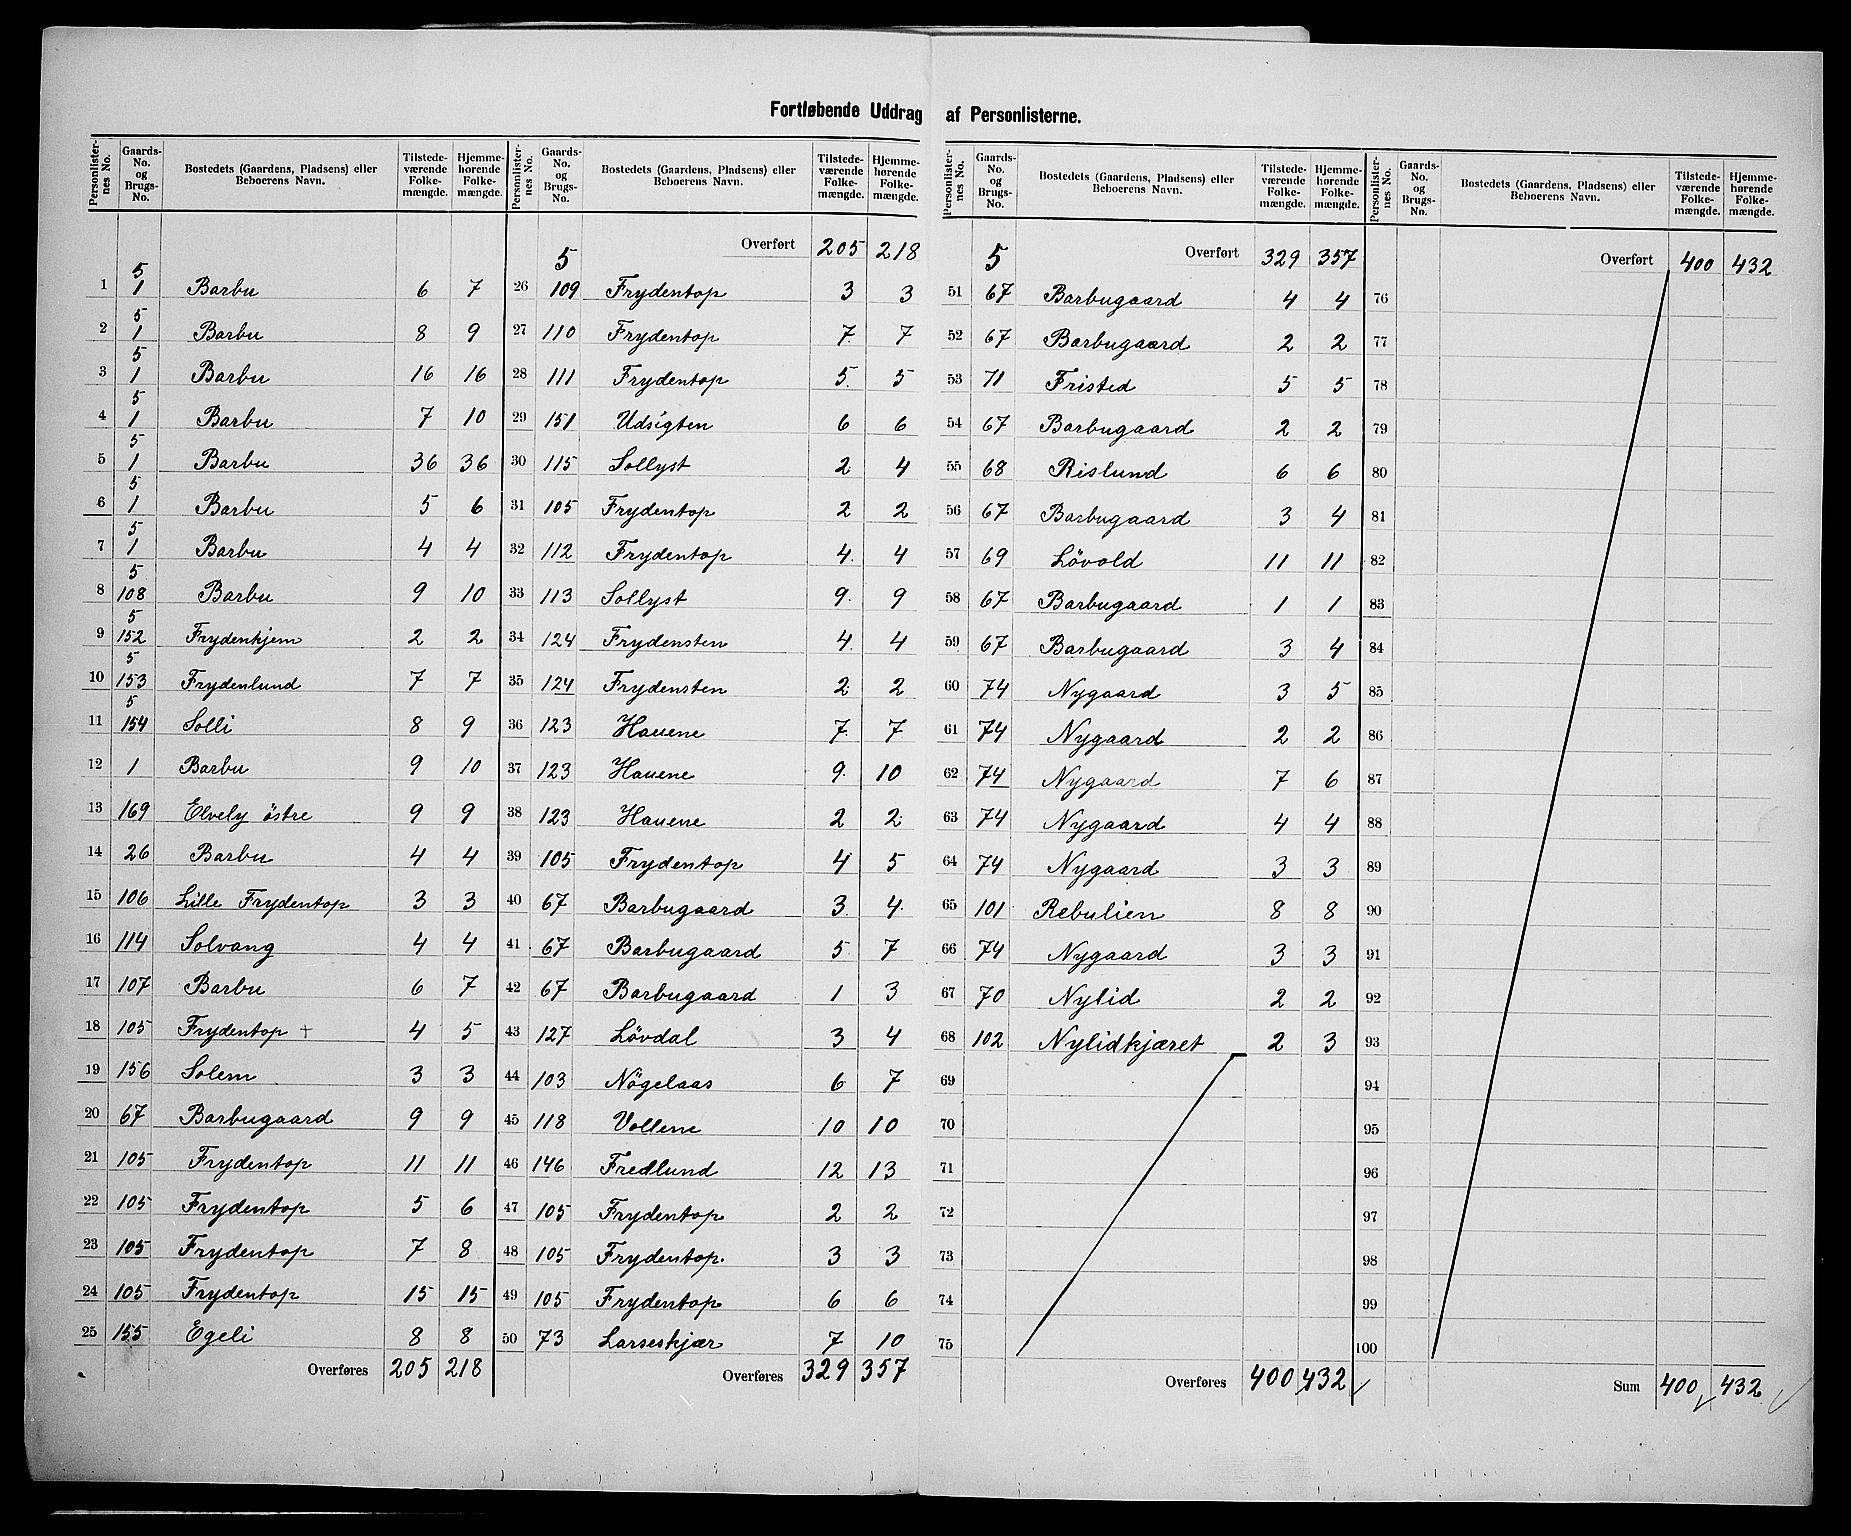 Fortløbende Uddrag af Personlisterne.
Personlister-nes No. Gaards-No. og Brugs-No. Bostedets (Gaardens, Pladsens) eller Beboerens Navn. Tilstede-værende Folke-mængde. Hjemme-hørende Folke-mængde.
1 5/1 Barbu 6 7
2 5/1 Barbu 8 9
3 5/1 Barbu 16 16
4 5/1 Barbu 7 10
5 5/1 Barbu 36 36
6 5/1 Barbu 5 6
7 5/1 Barbu 4 4
8 5/108 Barbu 9 10
9 5/152 Frydenhjem 2 2
10 5/153 Frydenlund 7 7
11 5/154 Solli 8 9
12 1 Barbu 9 10
13 169 Elvely östre 9 9
14 26 Barbu 4 4
15 106 Lille Frydentop 3 3
16 114 Solvang 4 4
17 107 Barbu 6 7
18 105 Frydentop + 4 5
19 156 Solem 3 3
20 67 Barbugaard 9 9
21 105 Frydentop 11 11
22 105 Frydentop 5 6
23 105 Frydentop 7 8
24 105 Frydentop 15 15
25 155 Egeli 8 8
Overføres 205 218
Personlister-nes No. Gaards-No. og Brugs-No. Bostedets (Gaardens, Pladsens) eller Beboerens Navn. Tilstede-værende Folke-mængde. Hjemme-hørende Folke-mængde.
5 Overført 205 218
26 109 Frydentop 3 3
27 110 Frydentop 7 7
28 111 Frydentop 5 5
29 151 Udsigten 6 6
30 115 Sollyst 2 4
31 105 Frydentop 2 2
32 112 Frydentop 4 4
33 113 Sollyst 9 9
34 124 Frydensten 4 4
35 124 Frydensten 2 2
36 123 Hauene 7 7
37 123 Hauene 9 10
38 123 Hauene 2 2
39 105 Frydentop 4 5
40 67 Barbugaard 3 4
41 67 Barbugaard 5 7
42 67 Barbugaard 1 3
43 127 Lövdal 3 4
44 103 Nögelaas 6 7
45 118 Vollene 10 10
46 146 Fredlund 12 13
47 105 Frydentop 2 2
48 105 Frydentop. 3 3
49 105 Frydentop 6 6
50 73 Larseskjær 7 10
Overføres 329 357
Personlister-nes No. Gaards-No. og Brugs-No. Bostedets (Gaardens, Pladsens) eller Beboerens Navn. Tilstede-værende Folke-mængde. Hjemme-hørende Folke-mængde.
5 Overført 329 357
51 67 Barbugaard 4 4
52 67 Barbugaard 2 2
53 71 Fristed 5 5
54 67 Barbugaard 2 2
55 68 Rislund 6 6
56 67 Barbugaard 3 4
57 69 Lövold 11 11
58 67 Barbugaard 1 1
59 67 Barbugaard 3 4
60 74 Nygaard 3 5
61 74 Nygaard 2 2
62 74 Nygaard 7 6
63 74 Nygaard 4 4
64 74 Nygaard 3 3
65 101 Rebulien 8 8
66 74 Nygaard 3 3
67 70 Nylid 2 2
68 102 Nylidkjæret 2 3
69
70
71
72
73
74
75
Overføres 400 432
Personlister-nes No. Gaards-No. og Brugs-No. Bostedets (Gaardens, Pladsens) eller Beboerens Navn. Tilstede-værende Folke-mængde. Hjemme-hørende Folke-mængde.
Overført 400 432
76
77
78
79
80
81
82
83
84
85
86
87
88
89
90
91
92
93
94
95
96
97
98
99
100
Sum 400 432